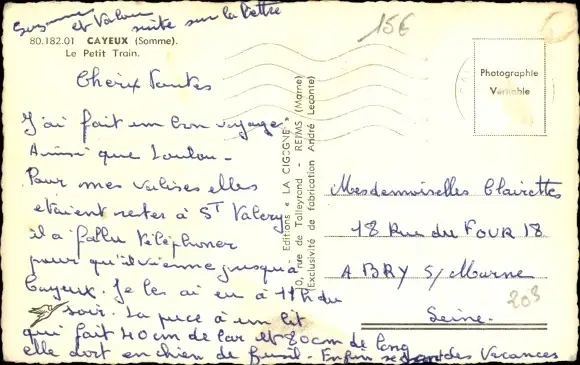 et Valou suite sur la lettre
15€
80.182.01 CAYEUX (Somme).
Le Petit Train.
Cheres Tantes
J'ai fait un bon voyage
Ainsi que Loulou -
Pour mes valises elles
etaient restes à St Valery
il a fallu téléphoner
pour qu'il vienne jusqu'a
Cayeux. Je les ai eu à 11h du
soir. La puce à un lit
qui fait 40 cm de lar et 80 cm de long
elle dort en chien de fusil - Enfin se sont des Vacances
Editions « LA CIGOGNE »
rue de Talleyrand - REIMS (Marne)
(Exclusivité de fabrication André Leconte)
Photographie
Véritable
Mesdemoiselles Clairettes
18 Rue du FOUR 18
A BRY S/ Marne
Seine.
203